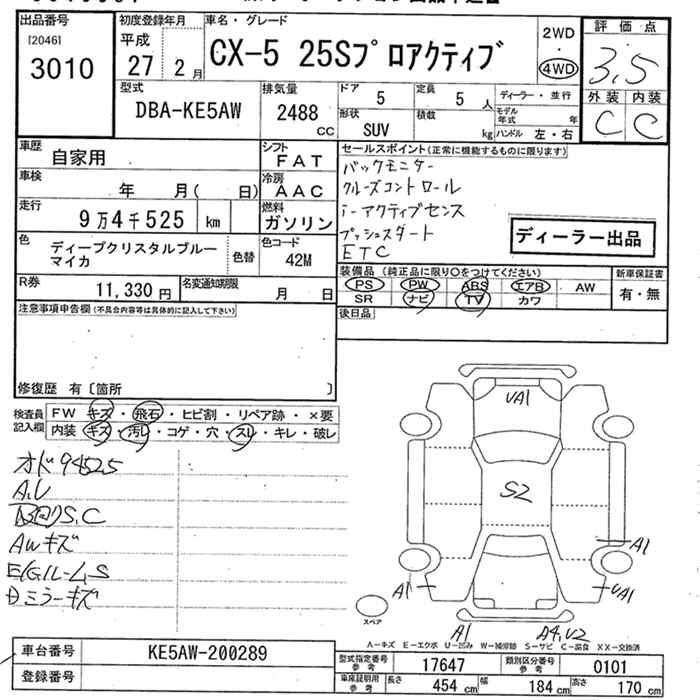 出品番号
[2046]
3010
初度登録年月
平成
27 2月
車名・グレード
CX-5 25Sプロアクティブ
2WD
・
4WD
評価点
3.5
外装 内装
C C
型式
DBA-KE5AW
排気量
2488
cc
ドア 5
定員 5 人
ディーラー・並行
モデル年式 年
形状 SUV
積載 kg
ハンドル 左・右
車歴 自家用
シフト FAT
車検 年 月( 日)
冷房 AAC
走行 9万4千525 km
燃料 ガソリン
色 ディープクリスタルブルーマイカ
色替
色コード 42M
R券 11,330円
名変通知期限 月 日
セールスポイント(正常に機能するものに限ります)
バックモニター
クルーズコントロール
i-アクティブセンス
プッシュスタート
ETC
ディーラー出品
装備品(純正品に限り○をつけてください)
新車保証書
PS PW ABS エアB AW
有・無
SR ナビ TV カワ
後日品
注意事項申告欄(不具合内容等は具体的に記入して下さい)
修復歴 有〔箇所 〕
検査員記入欄
FW キズ・飛石・ヒビ割・リペア跡・×要
内装 キズ・汚レ・コゲ・穴・スレ・キレ・破レ
オド94525
A,U
S,C
AWキズ
ミラーキズ
UA1
S2
A1
A1
UA1
スペア
A1
A4,U2
A－キズ E－エクボ U－凹み W－補修跡 S－サビ C－腐食 XX－交換済
車台番号 KE5AW-200289
登録番号
型式指定番号参考 17647
類別区分番号参考 0101
車庫証明用参考
長さ 454 cm
幅 184 cm
高さ 170 cm